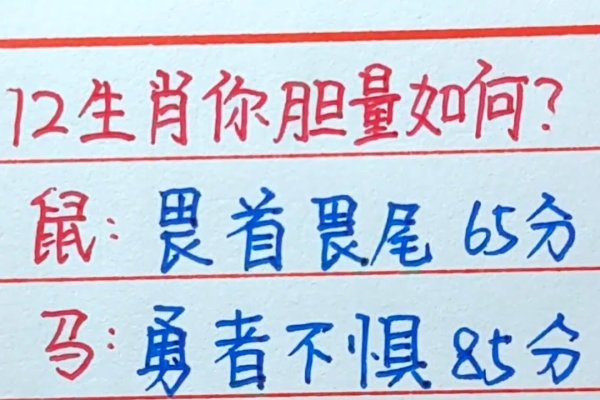 12生肖你胆量如何?
鼠:畏首畏尾 65分
马:勇者不惧 85分